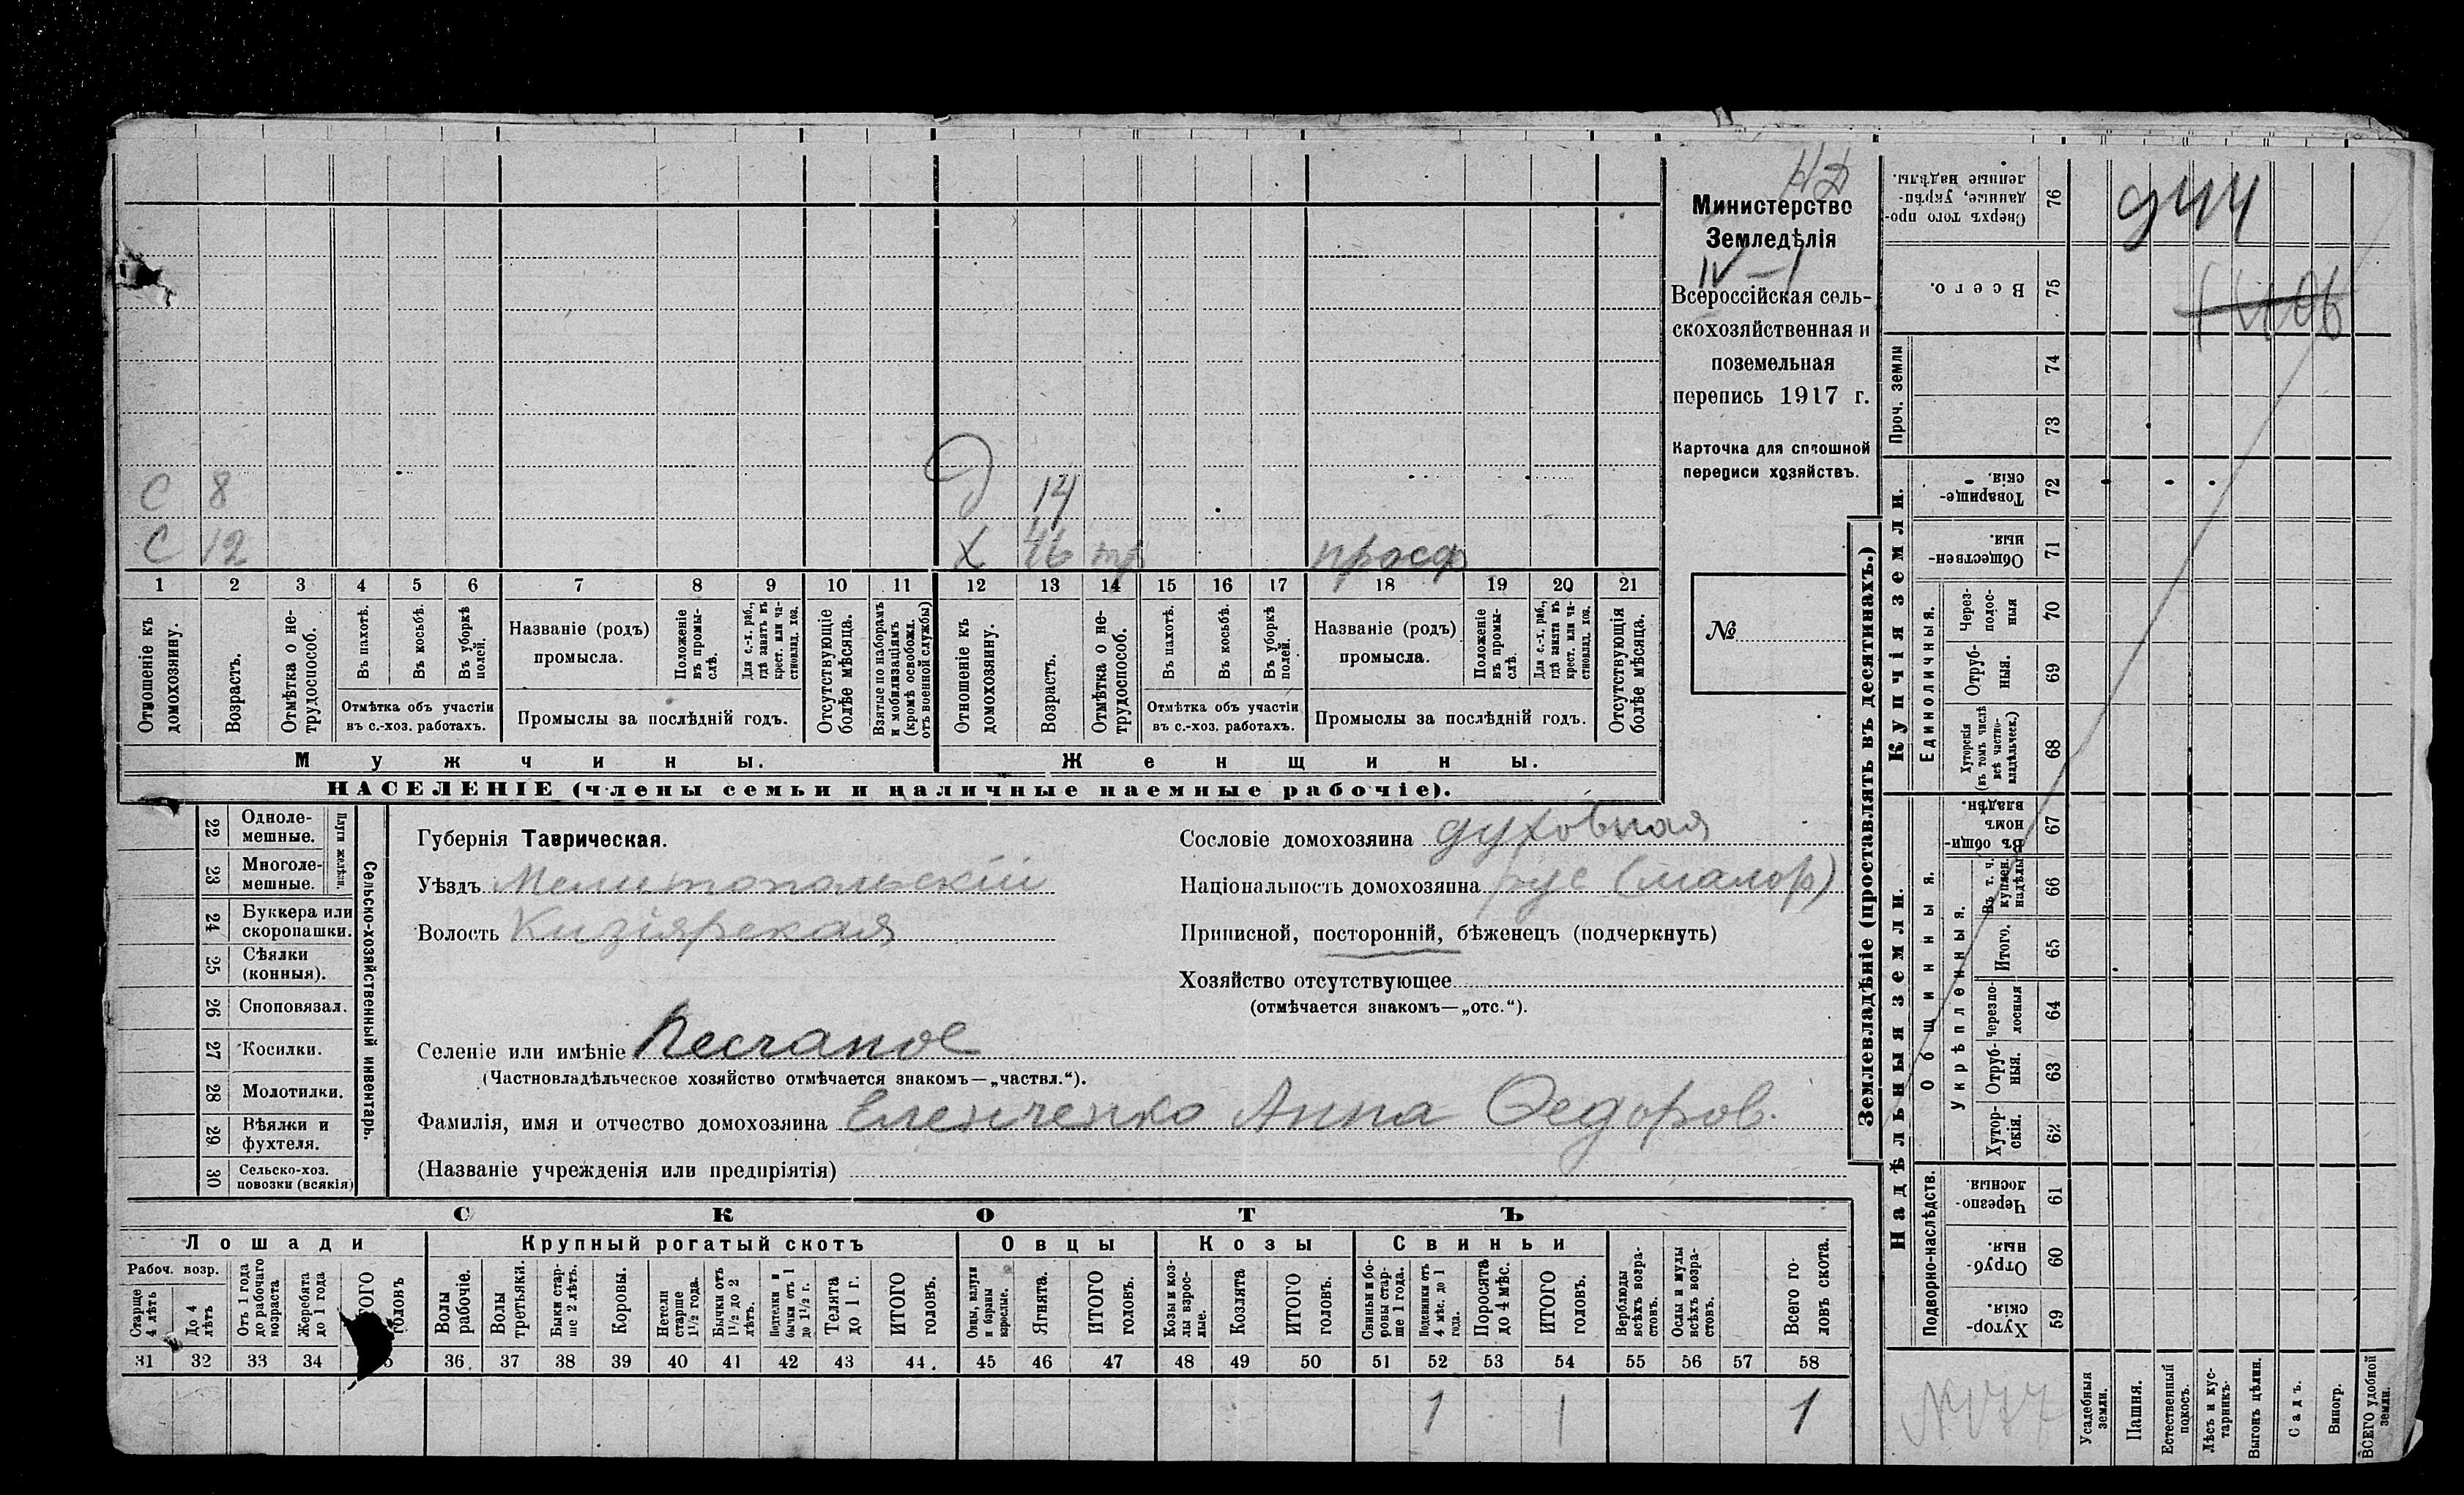 НД
Министерство
Земледѣлія
IV – 1
Всероссійская сель-
скохозяйственная и
поземельная
перепись 1917 г.
Карточка для сплошной
переписи хозяйствъ.
№
С 8
Д 14
С 12
Х 46 тр просф
1 2 3 4 5 6 7 8 9 10 11 12 13 14 15 16 17 18 19 20 21
Отношеніе къ домохозяину.
Возрастъ.
Отмѣтка о не-трудоспособ.
Въ пахотѣ.
Въ косьбѣ.
Въ уборкѣ полей.
Отмѣтка объ участіи
въ с.-хоз. работахъ.
Названіе (родъ)
промысла.
Положеніе въ промы-слѣ.
Для с.-х. раб., гдѣ занятъ въ крест. или ча-стновлад. хоз.
Промыслы за послѣдній годъ.
Отсутствующіе болѣе мѣсяца.
Взятые по наборамъ и мобилизаціямъ (кромѣ освобожд. отъ военной службы)
Отношеніе къ домохозяину.
Возрастъ.
Отмѣтка о не-трудоспособ.
Въ пахотѣ.
Въ косьбѣ.
Въ уборкѣ полей.
Отмѣтка объ участіи
въ с.-хоз. работахъ.
Названіе (родъ)
промысла.
Положеніе въ промы-слѣ.
Для с.-х. раб., гдѣ занята въ крест. или ча-стновлад. хоз.
Промыслы за послѣдній годъ.
Отсутствующія болѣе мѣсяца.
Мужчины.
Женщины.
НАСЕЛЕНІЕ (члены семьи и наличные наемные рабочіе).
22 Одноле-мешные.
23 Многоле-мешные.
Плуги желѣзн.
24 Буккера или скоропашки.
25 Сѣялки (конныя).
26 Сноповязал.
27 Косилки.
28 Молотилки.
29 Вѣялки и фухтеля.
30 Сельско-хоз. повозки (всякія)
Сельско-хозяйственный инвентарь.
Губернія Таврическая.
Уѣздъ Мелитопольскій
Волость Кизіярская
Сословіе домохозяина духовная
Національность домохозяина рус (малор)
Приписной, посторонній, бѣженецъ (подчеркнуть)
Хозяйство отсутствующее
(отмѣчается знакомъ—„отс.“).
Селеніе или имѣніе Песчаное
(Частновладѣльческое хозяйство отмѣчается знакомъ—„частвл.“).
Фамилія, имя и отчество домохозяина Еленченко Анна Ѳедоров.
(Названіе учрежденія или предпріятія)
СКОТЪ
Лошади
Крупный рогатый скотъ
Овцы
Козы
Свиньи
Рабоч. возр.
Старше 4 лѣтъ
До 4 лѣтъ
Отъ 1 года до рабочаго возраста
Жеребята до 1 года
ИТОГО головъ
Волы рабочіе.
Волы третьяки.
Быки стар-ше 2 лѣтъ.
Коровы.
Нетели старше 1½ года.
Бычки отъ 1½ до 2 лѣтъ.
Подтелки и бычки отъ 1 до 1½ г.
Телята до 1 г.
ИТОГО головъ.
Овцы, валухи и бараны взрослые.
Ягнята.
ИТОГО головъ.
Козы и коз-лы взрос-лые.
Козлята
ИТОГО головъ.
Свиньи и бо-ровы стар-ше 1 года.
Подсвинки отъ 4 мѣс. до 1 года.
Поросята до 4 мѣс.
ИТОГО головъ.
Верблюды всѣхъ возра-стовъ.
Ослы и мулы всѣхъ возра-стовъ.
Всего го-ловъ скота.
31 32 33 34 36 37 38 39 40 41 42 43 44 45 46 47 48 49 50 51 52 53 54 55 56 57 58
1 1 1
Землевладѣніе (проставлять въ десятинахъ.)
Сверхъ того про-данные, укрѣп-ленные надѣлы. 76
Всего. 75
Проч. земли
74
73
Купчія земли.
Товарище-скія. 72
Обществен-ныя. 71
Единоличныя.
Через-полос-ныя 70
Отруб-ныя. 69
Хуторскія (въ томъ числѣ всѣ частно-владѣльческ.) 68
Надѣльныя земли.
Общинныя.
Въ общин-номъ владѣн. 67
Укрѣпленныя.
Въ т. ч. куплен. надѣлы 66
Итого. 65
Черезпо-лосныя 64
Отруб-ныя. 63
Хутор-скія. 62
Подворно-наслѣдств.
Черезпо-лосныя. 61
Отруб-ныя. 60
Хутор-скія. 59
№ 177
Усадебныя земли.
Пашня.
Естественный покосъ.
Лѣсъ и кус-тарникъ.
Выгонъ цѣлин.
Садъ.
Виногр.
ВСЕГО удобной земли.